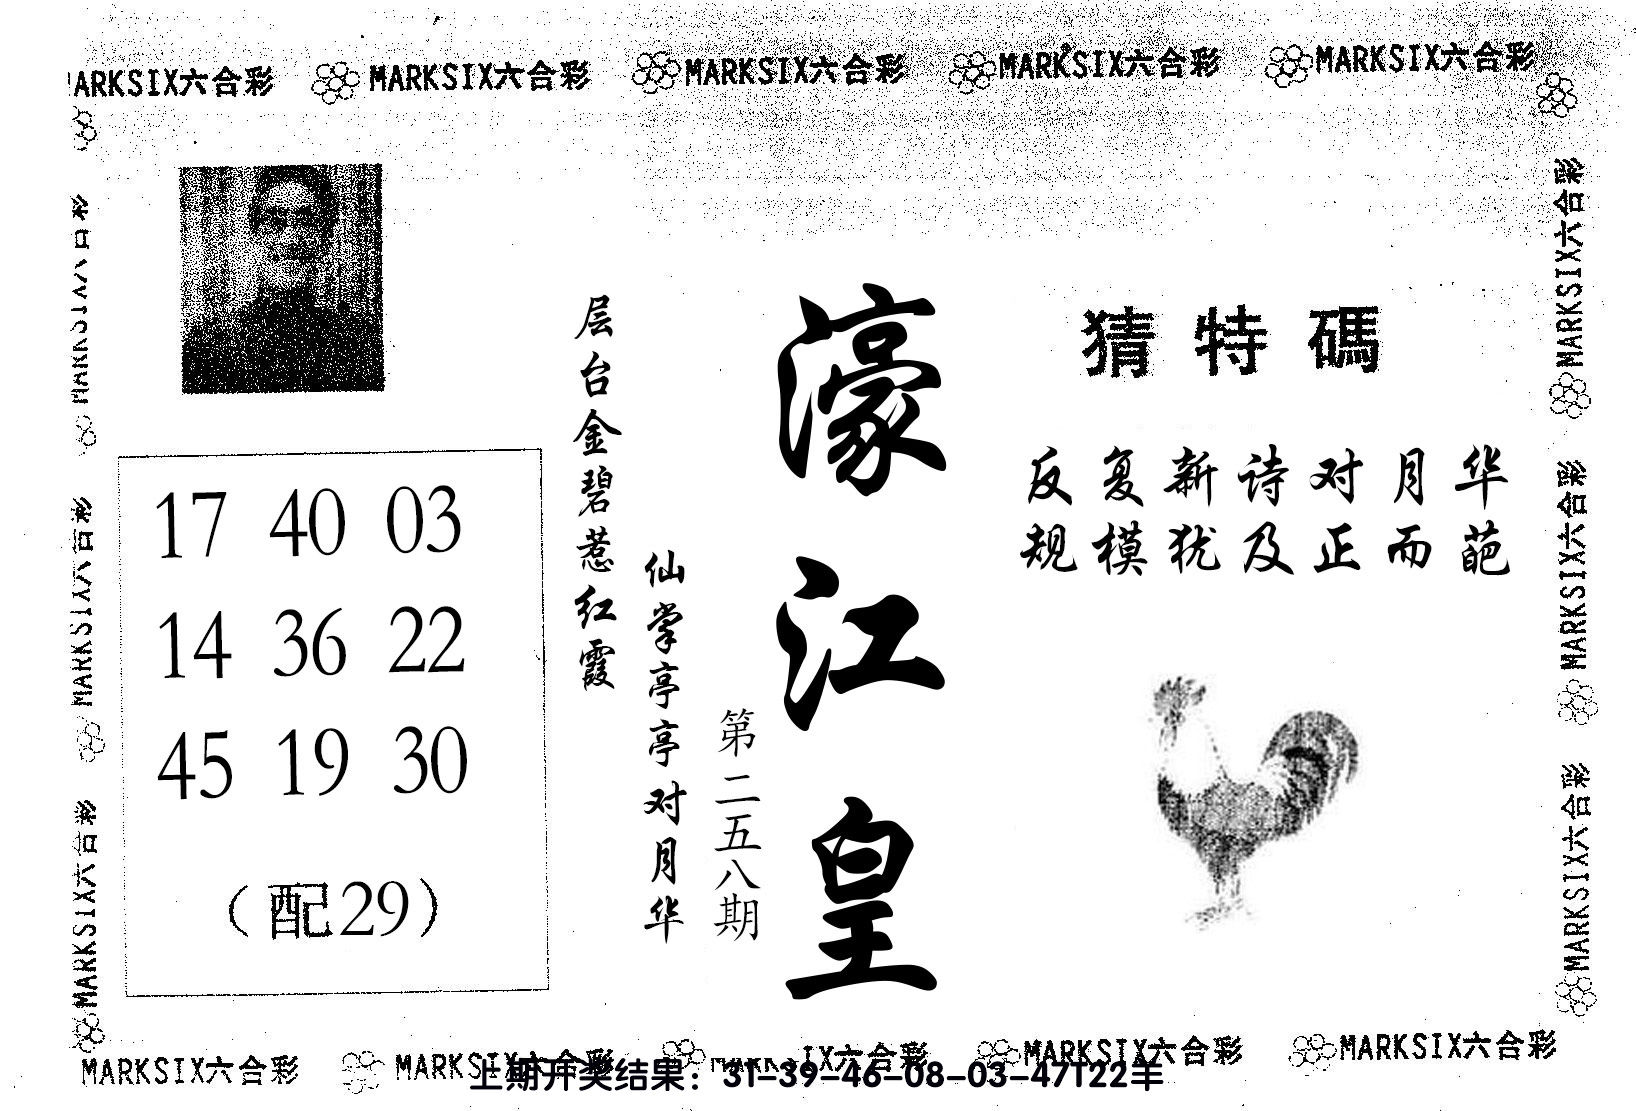 MARKSIX六合彩 MARKSIX六合彩 MARKSIX六合彩 MARKSIX六合彩 MARKSIX六合彩
猜特碼
反复新诗对月华
规模犹及正而葩
濠江皇
第二五八期
层台金碧惹红霞
仙掌亭亭对月华
17 40 03
14 36 22
45 19 30
（配29）
MARKSIX六合彩
MARKSIX六合彩
MARKSIX六合彩
MARKSIX六合彩
MARKSIX六合彩
MARKSIX六合彩
MARKSIX六合彩 MARKSIX六合彩 IX六合彩 MARKSIX六合彩 MARKSIX六合彩
上期开奖结果：31-39-46-08-03-47T22羊